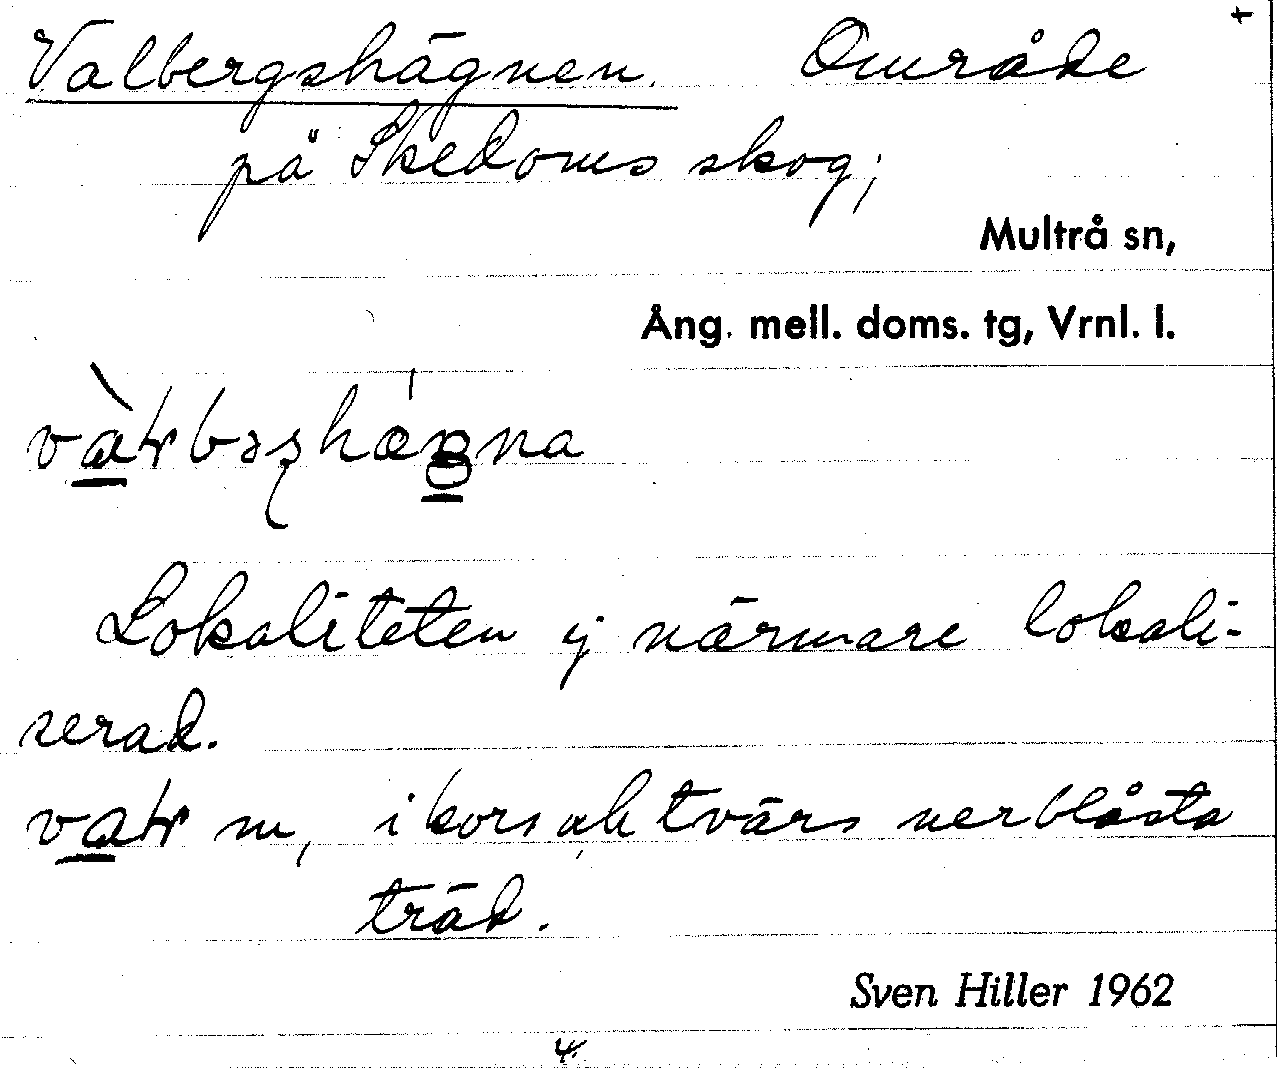 Valbergshägnen. Område
på Skedoms skog;
Multrå sn,
Ång. mell. doms. tg, Vrnl. l.
Lokaliteten ej närmare lokali-
serad.
m, i kors och tvärs nerblåsta
träd.
Sven Hiller 1962